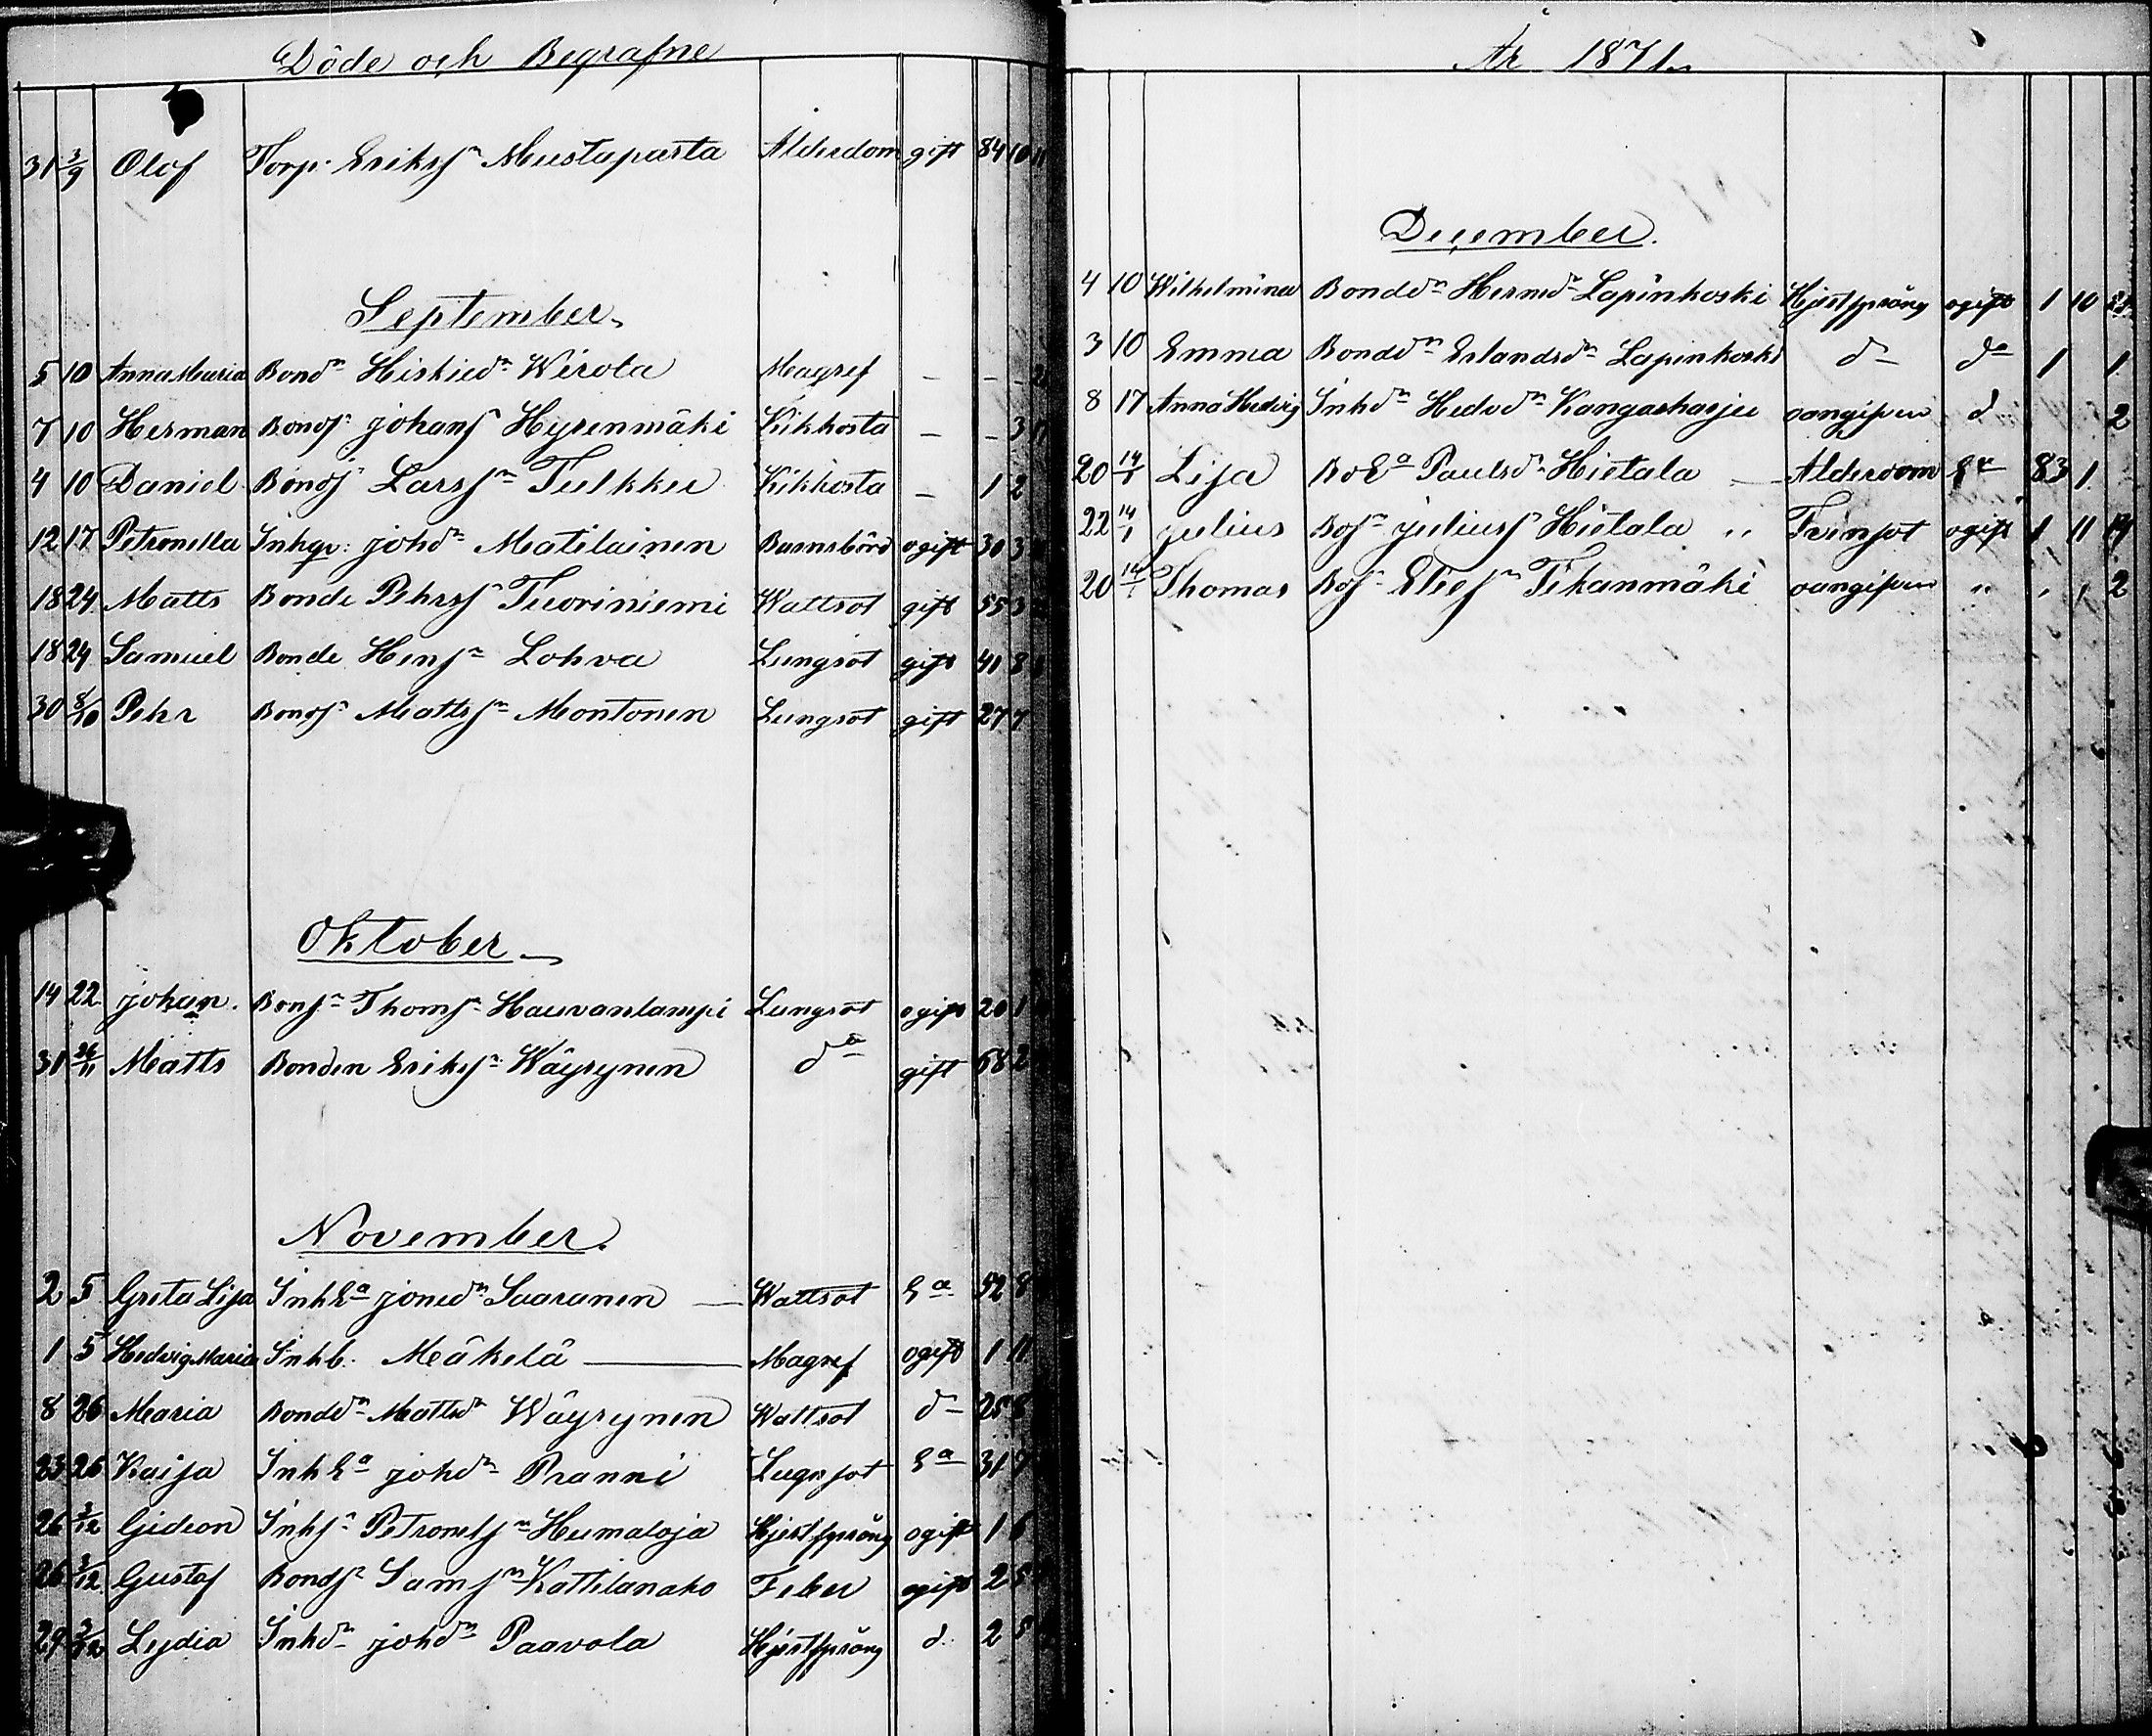 Döde och Begrafne
31 3/9 Olof Torp. Eriksn Mustaparta Ålderdom gift 84 10 11
September
5 10 Anna Maria Bondn Hiskied Wirola Magref - - -
7 10 Herman Bonds Johans Hyrenmäki Kikhosta - - 3 11
4 10 Daniel Bonds Larssn Tulkku Kikhosta - 1 2
12 17 Petronella Inhqv: Johdn Matilainen Barnsbörd ogift 30 3
18 24 Matts Bonde Pehrsn Tuoriniemi Wattsot gift 55 3
18 24 Samuel Bonde Hensn Lohva Lungsot gift 41 8
30 8/10 Pehr Bondsn Mattsn Montonen Lungsot gift 27 7
Oktober
14 22 Johan. Bonsn Thomsn Hauvanlampi Lungsot ogift 20 1
31 26/11 Matts Bonden Eriksn Wäyrynen do gift 68 2
November.
2 5 Greta Lisa InhEa Jonedn Saaranen Wattsot Ea 52 8
1 5 Hedvig Maria Inhb. Mäkelä Magref ogift 1 11
8 26 Maria Bonddn Mattsdn Wäyrynen Wattsot d 25 8
23 26 Kaisa InhEa Johdn Pranni Lugnsot Ea 31 7
26 3/12 Gideon Inhsn Petronelsn Humaloja Hjertsprång ogift 1 6
26 3/12 Gustaf Bondsn Samsn Kattilanaho Feber ogift 2 5
29 3/12 Lydia Inhdn Johdn Paavola Hjertsprång d. 2 5
År 1871.
December.
4 10 Wilhelmina Bonddn Hermdn Lapinkoski Hjertsprång ogift 1 10 21
3 10 Emma Bonddn Erlandsdn Lapinkoski d do 1 1
8 17 Anna Hedvig Inhdn Hedvdn Kangasharju oangifven d 2
20 14/1 Lisa BoEa Paulsdn Hietala Ålderdom Ea 83 1
22 14/1 Julius Bosn Juliussn Hietala " Tvinsot ogift 1 11 14
20 14/1 Thomas Bosn Eliesn Tikanmäki oangifven " , , 2